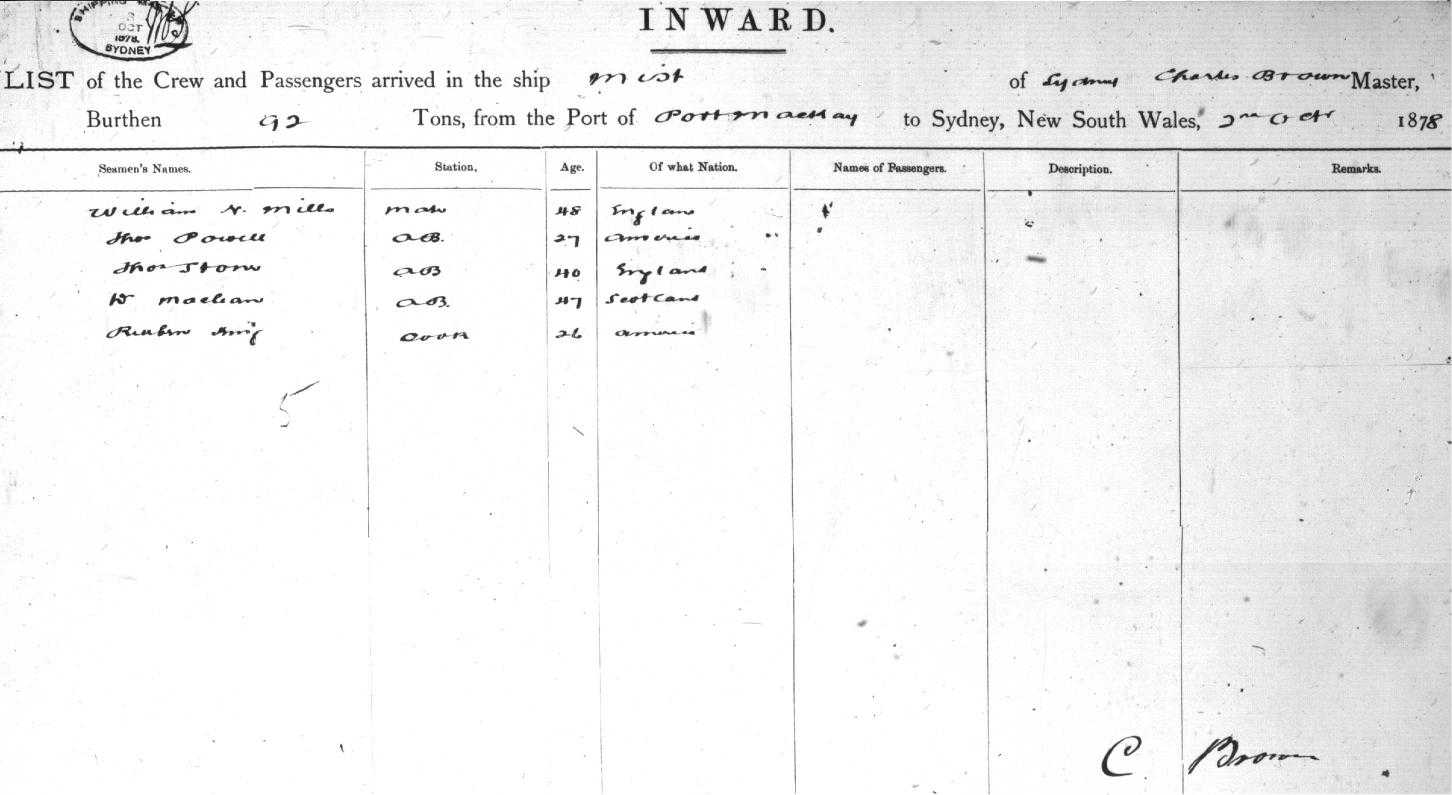 SHIPPING MASTER
OCT
1878
SYDNEY
INWARD.
LIST of the Crew and Passengers arrived in the ship Mist of Sydney Charles Brown Master,
Burthen 92 Tons, from the Port of Port Mackay to Sydney, New South Wales, 2nd Octr 1878
Seamen's Names. Station, Age. Of what Nation. Names of Passengers. Description. Remarks.
William N. Mills Mate 48 England
Thos Powell AB. 27 America
Thos Stone AB 40 England
Maclean AB. 47 Scotland
Reuben King Cook 26 America
5
C Brown